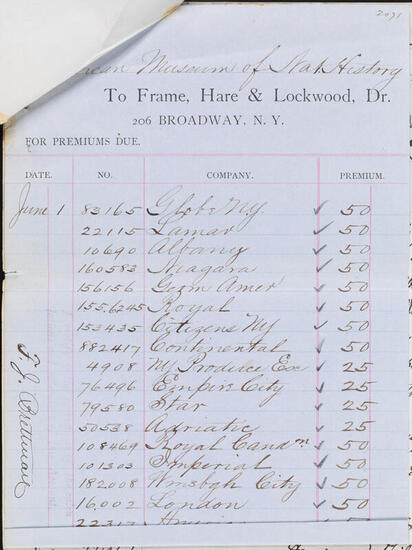 2071
rican Museum of Nat. History
To Frame, Hare & Lockwood, Dr.
206 BROADWAY, N. Y.
FOR PREMIUMS DUE.
DATE. NO. COMPANY. PREMIUM.
June 1 83165 Globe NY. ✓ 50
22115 Lamar ✓ 50
10690 Albany ✓ 50
160583 Niagara ✓ 50
156156 Germ Amer ✓ 50
155.6245 Royal ✓ 50
153435 Citizens NY ✓ 50
882417 Continental ✓ 50
4908 NY Produce Ex ✓ 25
76496 Empire City ✓ 25
79580 Star ✓ 25
50538 Adriatic ✓ 25
108469 Royal Canadn ✓ 50
101303 Imperial ✓ 50
182008 Wmsbgh City ✓ 50
16,002 London ✓ 50
50
F. J.